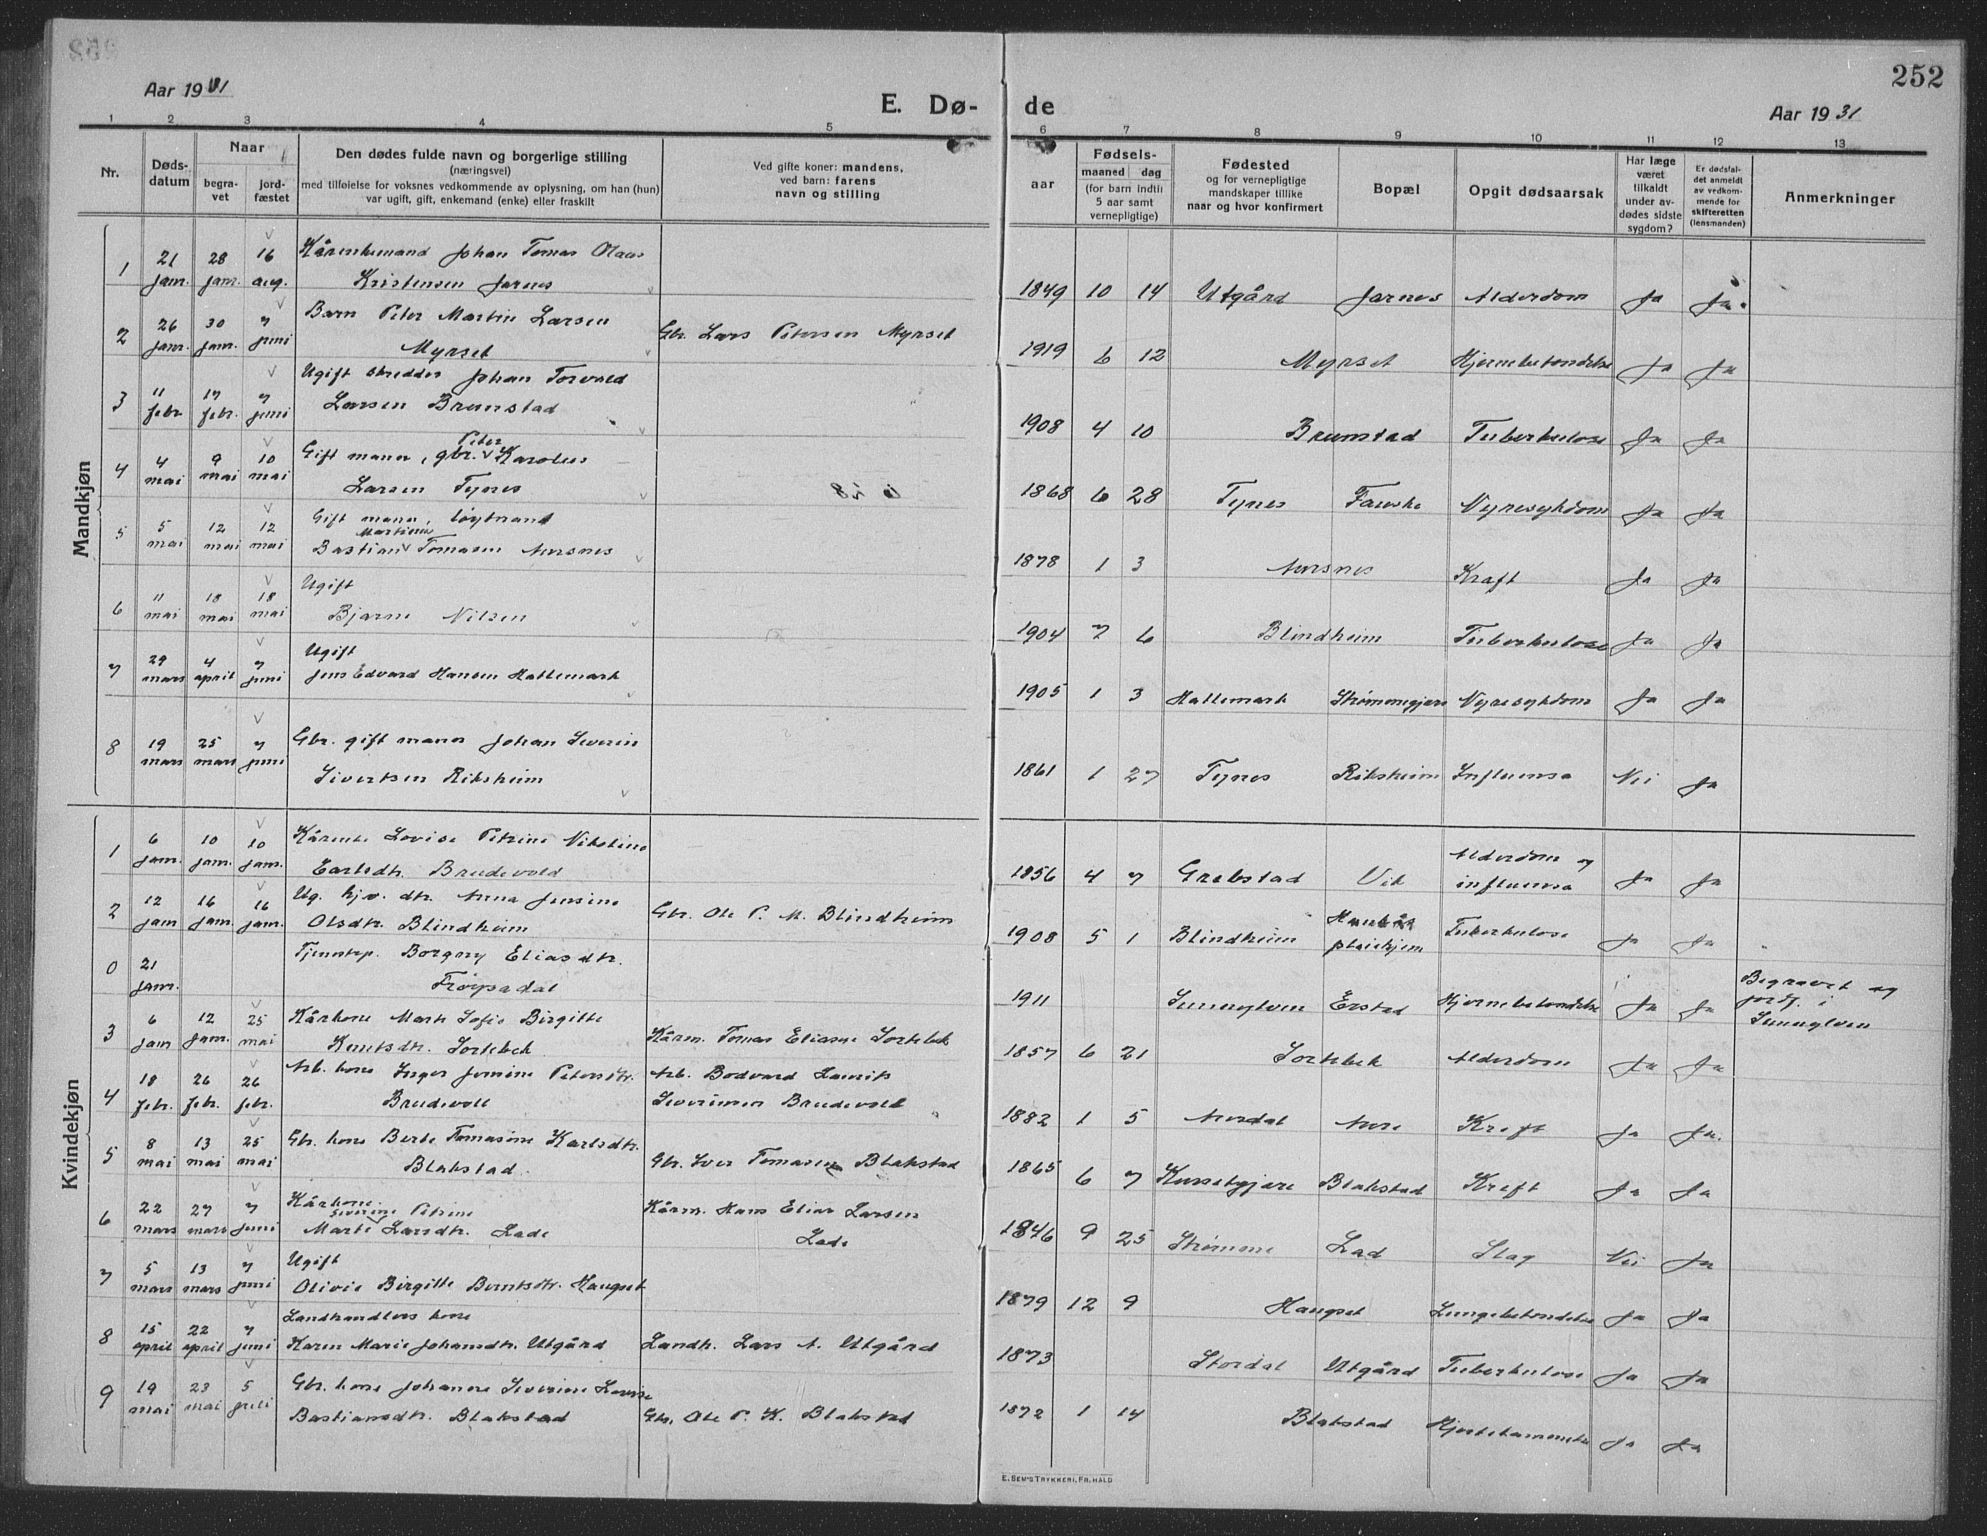 252
Aar 1931
E. Dø-
de
Aar 1931
1 2 3 4 5 6 7 8 9 10 11 12 13
Nr.
Døds-
datum
Naar
begra-
vet
jord-
fæstet
Den dødes fulde navn og borgerlige stilling
(næringsvei)
med tilføielse for voksnes vedkommende av oplysning, om han (hun)
var ugift, gift, enkemand (enke) eller fraskilt
Ved gifte koner: mandens,
ved barn: farens
navn og stilling
Fødsels-
aar
maaned dag
(for barn indtil
5 aar samt
vernepligtige)
Fødested
og for vernepligtige
mandskaper tillike
naar og hvor konfirmert
Bopæl
Opgit dødsaarsak
Har læge
været
tilkaldt
under av-
dødes sidste
sygdom?
Er dødsfal-
det anmeldt
av vedkom-
mende for
skifteretten
(lensmanden)
Anmerkninger
Mandkjøn
1 21 jan. 28 jan. 16 aug. Kårenkemand Johan Tomas Olaus
Kristensen Jarnes 1849 10 14 Utgård Jarnes Alderdom Ja Ja
2 26 jan. 30 jan. 7 juni Barn Peter Martin Larsen
Myrset Gbr. Lars Petersen Myrset 1919 6 12 Myrset Hjernebetendelse Ja Ja
3 11 febr. 17 febr. 7 juni Ugift skredder Johan Torvald
Larsen Brunstad 1908 4 10 Brunstad Tuberkulose Ja Ja
4 4 mai 9 mai 10 mai Gift mann, gbr. Peter Karolus
Larsen Tynes 1868 6 28 Tynes Fauske Nyresykdom Ja Ja
5 5 mai 12 mai 12 mai Gift mann,
Bastian Martinus Tomasen Aursnes 1878 1 3 Aursnes Kraft Ja Ja
6 11 mai 18 mai 18 mai Ugift
Bjarne Nilsen 1904 7 6 Blindheim Tuberkulose Ja Ja
7 29 mars 4 april 7 juni Ugift
Jens Edvard Hansen Hattemark 1905 1 3 Hattemark Strømmegjære Nyresykdom Ja Ja
8 19 mars 25 mars 7 juni Gbr. gift mann Johan Severin
Sivertsen Riksheim 1861 1 27 Tynes Riksheim Influensa Nei Ja
Kvindekjøn
1 6 jan. 10 jan. 10 jan. Kårenke Lovise Petrine Nikoline
Earlsdtr. Brudevold 1856 4 7 Grebstad Vik Alderdom og
influensa Ja Ja
2 12 jan 16 jan. 16 jan. Ug. hjv. dtr. Anna Jensine
Olsdtr. Blindheim Gbr. Ole P. M. Blindheim 1908 5 1 Blindheim
pleiehjem Tuberkulose Ja Ja
0 21 jan. Tjenstep. Borgny Eliasdtr.
Frøysadal 1911 Sunnylven Erstad Hjernebetendelse Ja Ja Begravet og
jordf. i
Sunnylven
3 6 jan 12 jan. 25 mai Kårkone Marte Sofie Birgitte
Knutsdtr. Sortebek Kårm. Tomas Eliasen Sortebek 1857 6 21 Sortebek Alderdom Ja Ja
4 18 febr. 26 febr. 26 febr. Arb. kone Inger Jensine Petersdtr.
Brudevoll Arb. Bodvard Laurits
Severinsen Brudevoll 1882 1 5 Aursdal Aure Kreft Ja Ja.
5 8 mai 13 mai 25 mai Gbr. kone Berte Tomasine Karlsdtr.
Blakstad. Gbr. Iver Tomasen Blakstad 1865 6 7 Kursetgjære Blakstad Kreft Ja Ja
6 22 mars 27 mars 7 juni Kårkone
Marte Severine Petrine Larsdtr. Lade Kårm. Hans Elias Larsen
Lade 1846 9 25 Strømme Lad Slag Nei Ja
7 5 mars 13 mars 7 juni Ugift
Olivie Birgitte Berntsdtr. Haugset 1879 12 9 Haugset Lungebetendelse Ja Ja
8 15 april 22 april 7 juni Landhandlers kone
Karen Marie Johansdtr. Utgård Landh. Lars A. Utgård 1873 Stordal Utgård Tuberkulose Ja Ja
9 19 mai 23 mai 5 juli Gbr. kone Johanne Severine Lovise
Bastiansdtr. Blakstad Gbr. Ole P. K. Blakstad 1872 1 14 Blakstad Ja Ja
E. SEM'S TRYKKERI, FR.HALD